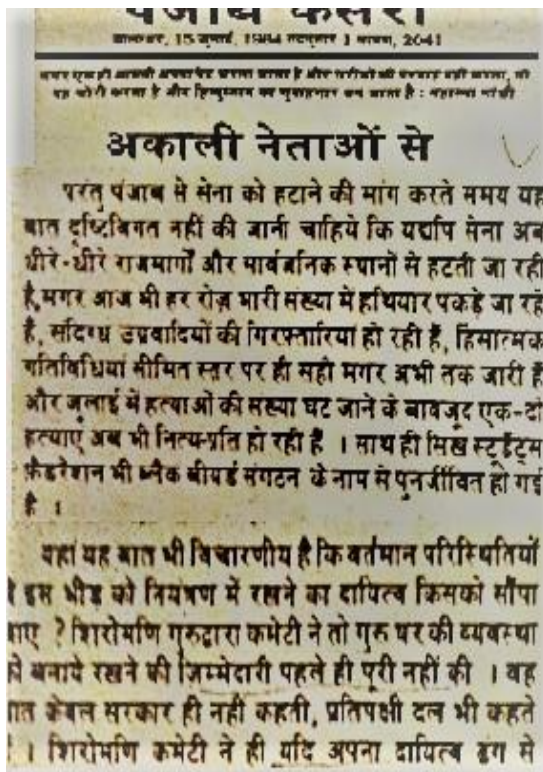 पंजाब केसरी
जालन्धर, 15 जुलाई, 1984 तदनुसार 1 श्रावण, 2041
अकाली नेताओं से
परंतु पंजाब से सेना को हटाने की मांग करते समय यह
बात दृष्टिविगत नहीं की जानी चाहिये कि यद्यपि सेना अब
धीरे-धीरे राजमार्गों और सार्वजनिक स्थानों से हटती जा रही
है, मगर आज भी हर रोज़ भारी संख्या में हथियार पकड़े जा रहे
है, संदिग्ध उग्रवादियों की गिरफ्तारियां हो रही हैं, हिंसात्मक
गतिविधियां सीमित स्तर पर ही सही मगर अभी तक जारी हैं
और जुलाई में हत्याओं की संख्या घट जाने के बावजूद एक-दो
हत्याएं अब भी नित्य-प्रति हो रही हैं । साथ ही सिख स्टूडैंट्स
फ़ैडरेशन भी ब्लैक बीयर्ड संगठन के नाप से पुनर्जीवित हो गई
है ।
यहां यह बात भी विचारणीय है कि वर्तमान परिस्थितियों
इस भीड़ को नियंत्रण में रखने का दायित्व किसको सौंपा
जाए ? शिरोमणि गुरुद्वारा कमेटी ने तो गुरु घर की व्यवस्था
को बनाये रखने की जिम्मेदारी पहले ही पूरी नहीं की । वह
बात केवल सरकार ही नहीं कहती, प्रतिपक्षी दल भी कहते
। शिरोमणि कमेटी ने ही यदि अपना दायित्व ढंग से